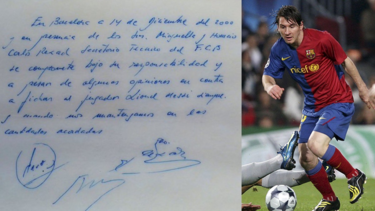 En Barcelona a 14 de Diciembre del 2000
y en presencia de los Srs. Minguella y Horacio
Carlos Rexach Secretario Técnico del F.C.B
se compromete bajo su responsabilidad y
a pesar de algunas opiniones en contra
a fichar al jugador Lionel Messi
y cuando nos mantengamos en las
cantidades acordadas
unicef